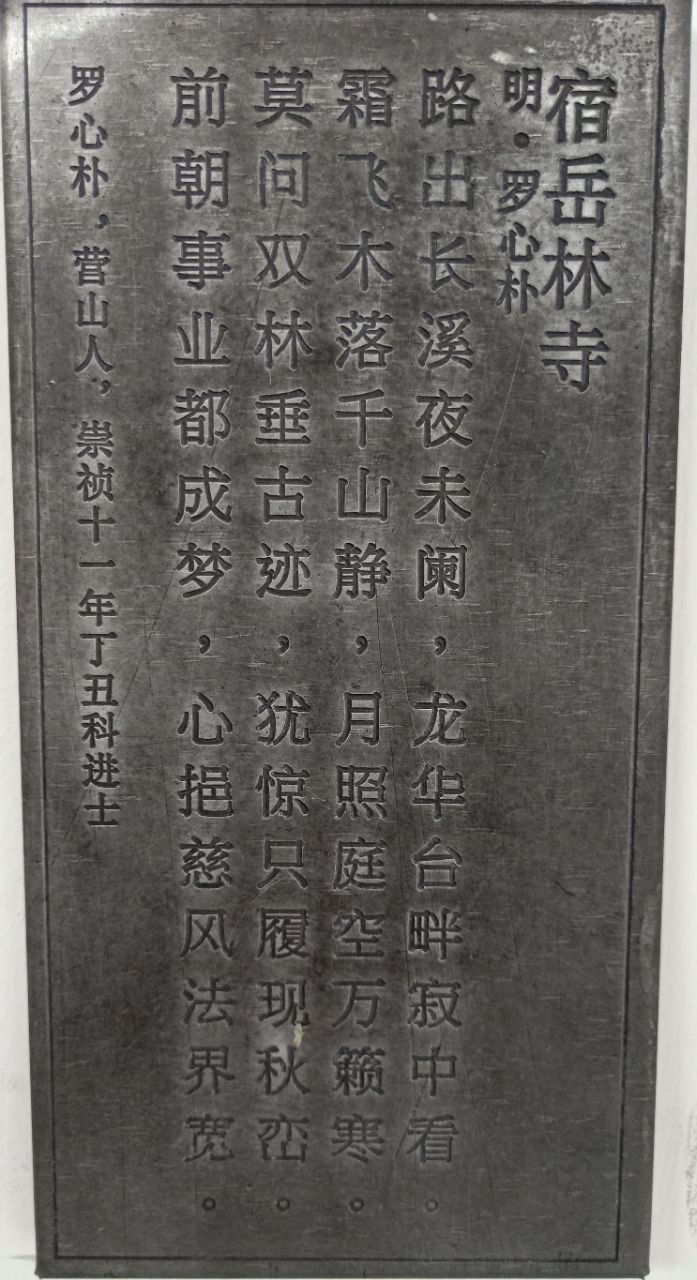 宿岳林寺
明·罗心朴
路出长溪夜未阑，龙华台畔寂中看。
霜飞木落千山静，月照庭空万籁寒。
莫问双林垂古迹，犹惊只履现秋峦。
前朝事业都成梦，心挹慈风法界宽。
罗心朴，营山人，崇祯十一年丁丑科进士